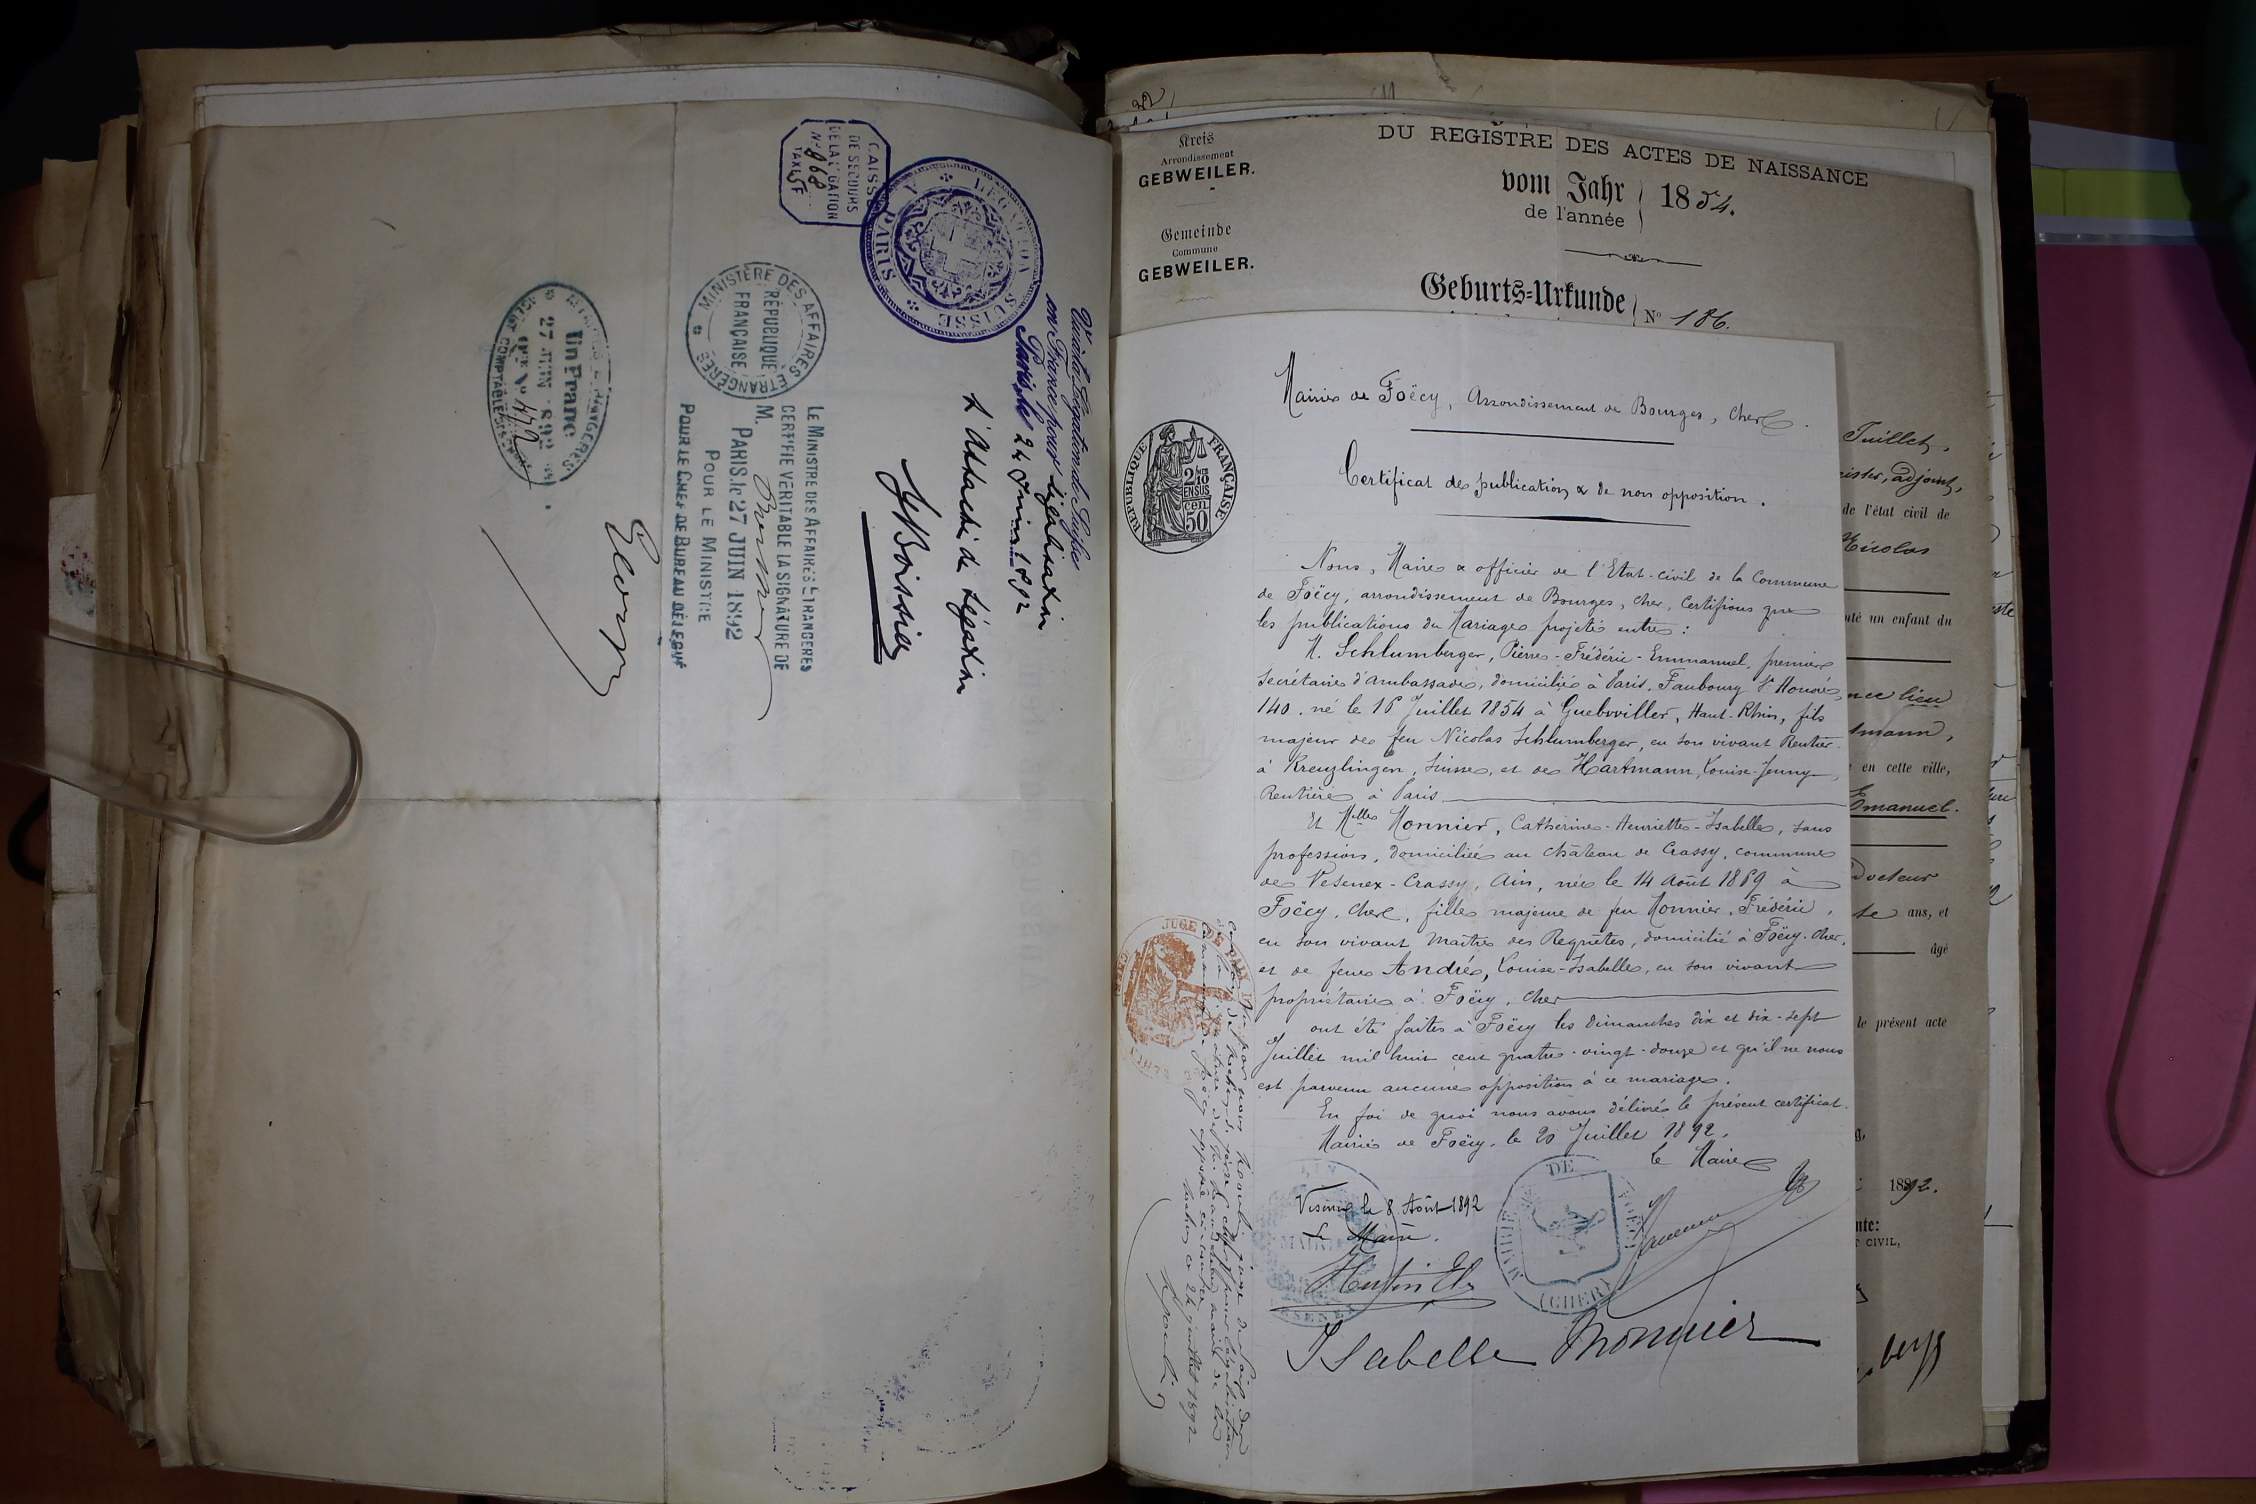 CAISSE
DE SECOURS
DE LA LEGATION
No 868
TAXE 5F
LEGATION SUISSE A PARIS
Vu à la Légation de Suisse
en France pour légalisation
Paris, le 24 Juin 1892
L'Attaché de Légation
Boissier
MINISTÈRE DES AFFAIRES ÉTRANGÈRES
RÉPUBLIQUE
FRANÇAISE
LE MINISTRE DES AFFAIRES ETRANGERES
CERTIFIE VERITABLE LA SIGNATURE DE
M.
PARIS, le 27 JUIN 1892
POUR LE MINISTRE
POUR LE CHEF DE BUREAU DÉLÉGUÉ
AFFAIRES ETRANGÈRES
Un Franc
27 JUIN 1892
No 472
COMPTABLE
Kreis
Arrondissement
GEBWEILER.
Gemeinde
Commune
GEBWEILER.
DU REGISTRE DES ACTES DE NAISSANCE
vom Jahr
de l'année
1854.
Geburts-Urkunde
No 186.
Mairie de Foëcy, Arrondissement de Bourges, Cher.
Certificat de publication & de non opposition.
RÉPUBLIQUE FRANÇAISE
2/10
EN SUS
50 cen
Nous, Maire & officier de l'Etat-civil de la Commune
de Foëcy, arrondissement de Bourges, Cher, Certifions que
les publications du Mariage projeté entre :
M. Schlumberger, Pierre-Frédéric-Emmanuel, premier
Secrétaire d'ambassade, domicilié à Paris, Faubourg St Honoré,
140. né le 16 Juillet 1854 à Guebwiller, Haut-Rhin, fils
majeur de feu Nicolas Schlumberger, en son vivant Rentier
à Kreuzlingen, Suisse, et de Hartmann, Louise-Jenny,
Rentière à Paris
Et Melle Monnier, Catherine-Henriette-Isabelle, sans
profession, domiciliée au château de Crassy, commune
de Vesenex-Crassy, Ain, née le 14 Août 1869 à
Foëcy, Cher, fille majeure de feu Monnier, Frédéric,
en son vivant Maître des Requêtes, domicilié à Foëcy. Cher,
et de feue André, Louise-Isabelle, en son vivant
propriétaire à Foëcy, Cher
ont été faites à Foëcy les dimanches dix et dix-sept
Juillet mil huit cent quatre-vingt-douze et qu'il ne nous
est parvenu aucune opposition à ce mariage.
En foi de quoi nous avons délivré le présent certificat.
Mairie de Foëcy, le 20 Juillet 1892.
Le Maire
MAIRIE DE FOËCY
(CHER)
Vesenex le 8 Août 1892
Le Maire.
Isabelle Monnier
JUGE DE PAIX
Vu par nous juge de Paix du
ce 24 juillet 1892
Juillet,
adjoint,
de l'état civil de
Nicolas
un enfant du
lieu
en cette ville,
Emanuel.
Docteur
ans, et
âgé
le présent acte
1892.
CIVIL,